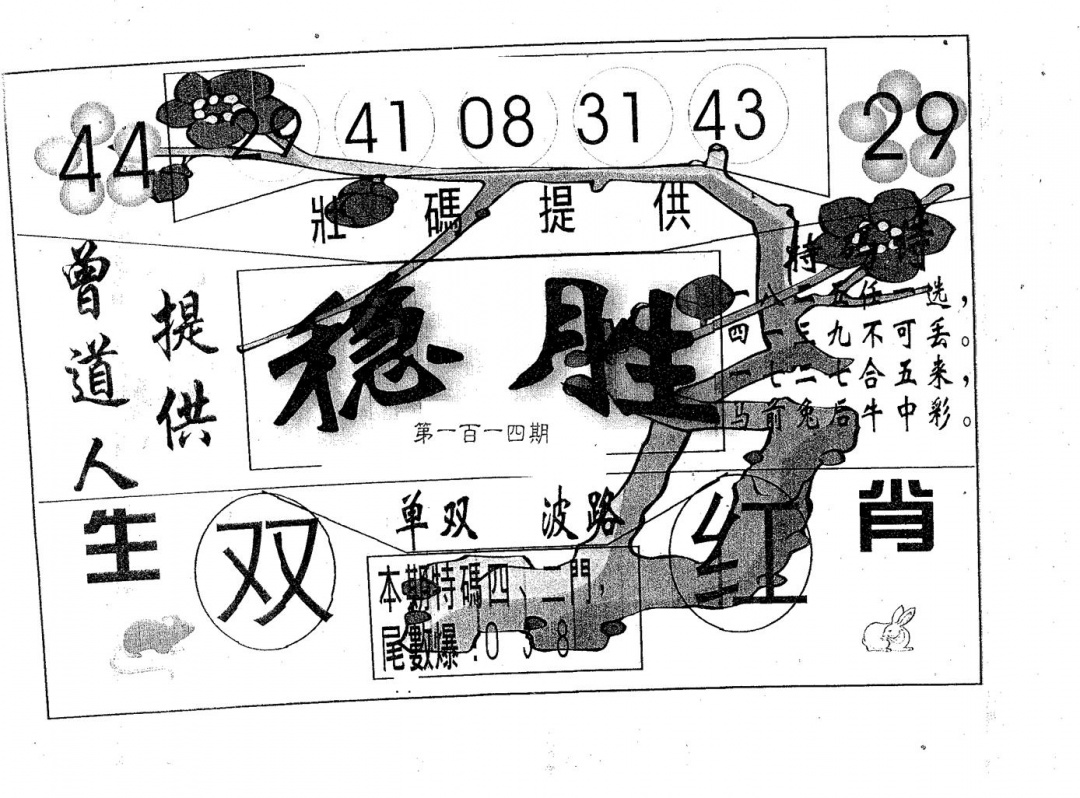 44 29 41 08 31 43 29
壯碼提供
曾道人
提供
特码诗
一八二五任一选，
四一三九不可丢。
一七二七合五来，
马前兔后牛中彩。
稳胜
第一百一四期
单双 波路
生 双 红 肖
本期特碼四、二門，
尾數爆：0 3 8